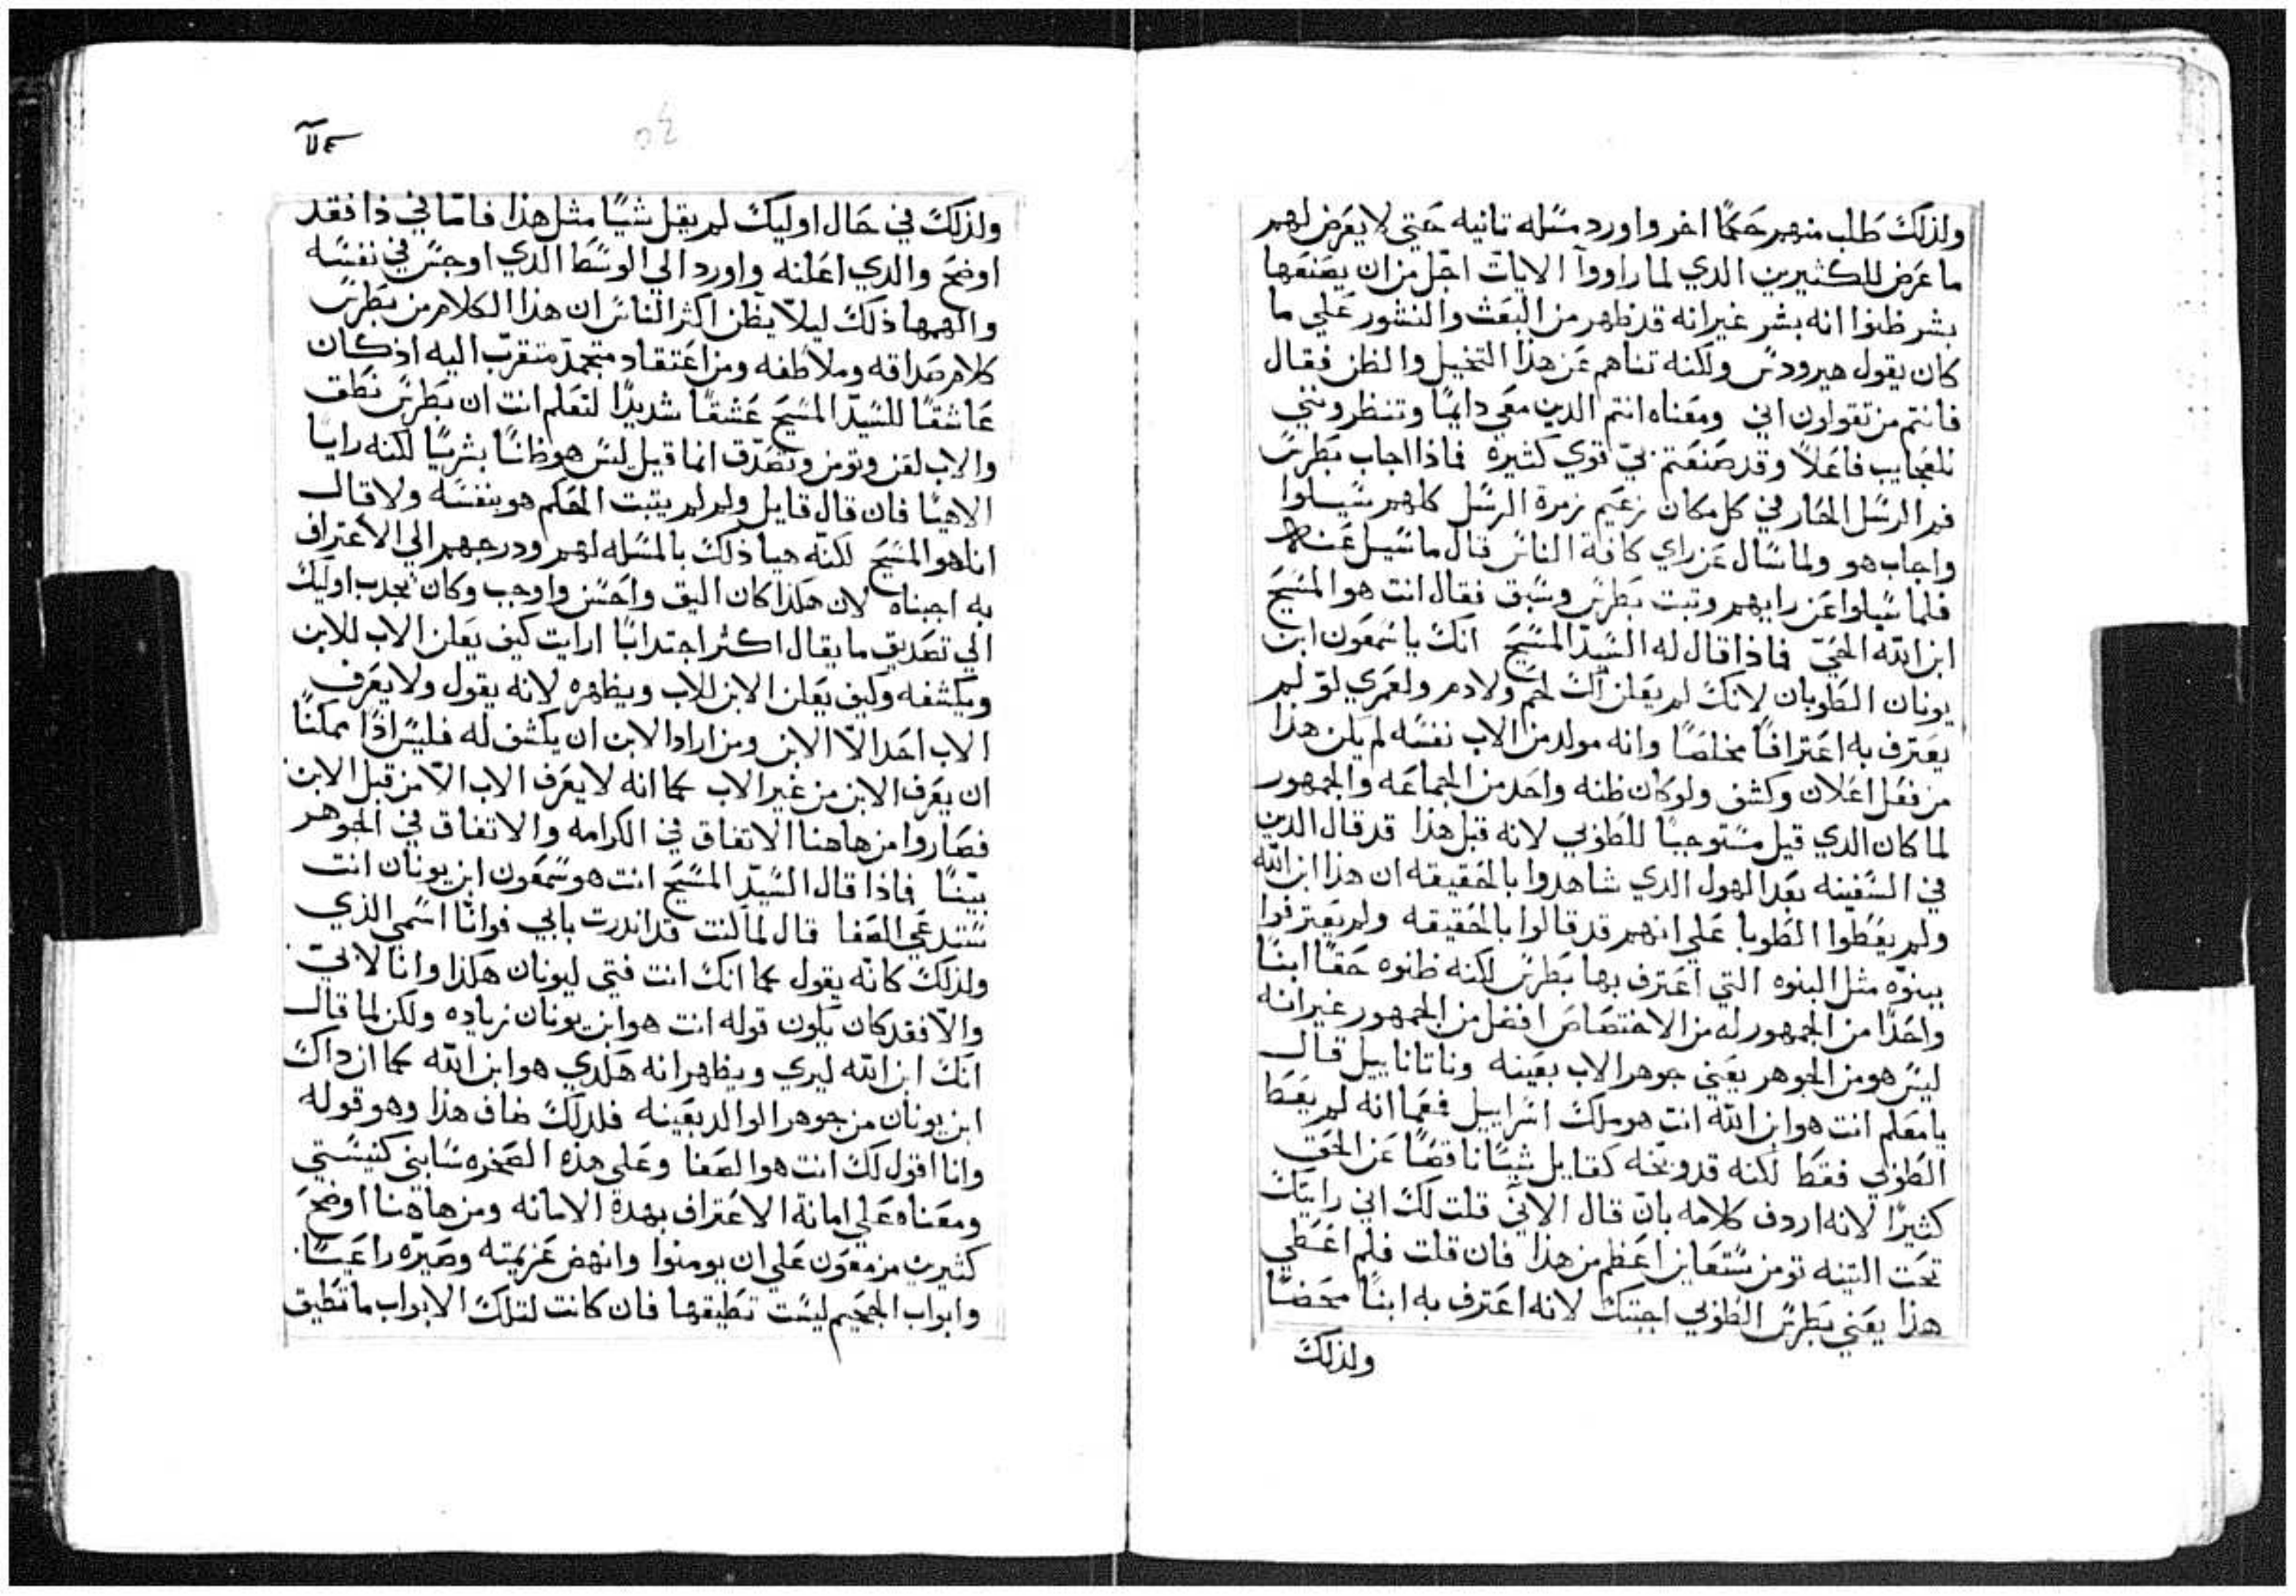 ولذلك طلب منهم حكمًا اخر واورد مسله تانيه حتي لا يعرض لهم
ما عرض للكثيرين الدي لما راووا الايات اجل من ان يصنعها
بشر ظنوا انه بشر غير انه قد ظهر من البعث والنشور علي ما
كان يقول هيرودس ولكنه تناهم عن هذا التخيل والظن فقال
فانتم من تقولون اني ومعناه انتم الدين معي دايمًا وتنظرونني
للعجايب فاعلاً وقد صنعتم بي قوي كتيره فماذا اجاب بطرس
فم الرسل الحار في كل مكان زعيم زمرة الرسل كلهم سيلوا
واجاب هو ولما سال عن راي كافة الناس قال ما سيل عنه
فلما سيلوا عن رايهم وتبت بطرس وسبق فقال انت هو المسيح
ابن الله الحي فماذا قال له السيد المسيح انك يا سمعون ابن
يونان الطوبان لانك لم يعلن لك لحم ولا دم ولعمري لو لم
يعترف به اعترافًا مخلصًا وانه مولد من الاب نفسه لم يكن هذا
من فعل اعلان وكشف ولو كان ظنه واحد من الجماعه والجمهور
لما كان الدي قيل مستوجبًا للطوبي لانه قبل هذا قد قال الدين
في السفينه بعد الهول الدي شاهدوا بالحقيقه ان هذا ابن الله
ولم يعطوا الطوبا علي انهم قد قالوا بالحقيقه ولم يعترفوا
ببنوه مثل البنوه التي اعترف بها بطرس لكنه ظنوه حقًا ابنًا
واحدًا من الجمهور له من الاختصاص افضل من الجمهور غير انه
ليس هو من الجوهر يعني جوهر الاب بعينه وناتاناييل قال
يا معلم انت هو ابن الله انت هو ملك اسراييل فعما انه لم يعط
الطوبي فقط لكنه قد وبخه كقايل شيًا ناقصًا عن الحق
كتيرًا لانه اردف كلامه بان قال الاني قلت لك اني رايتك
تحت التينه تومن ستعاين اعظم من هذا فان قلت فلم اعطي
هذا يعني بطرس الطوبي اجبتك لانه اعترف به ابنًا محضًا
ولذلك
ولذلك في حال اوليك لم يقل شيًا مثل هذا فاما في ذا فقد
اوضح والدي اعلنه واورد الي الوسط الدي اوجس في نفسه
والهمها ذلك ليلا يظن اكثر الناس ان هذا الكلام من بطرس
كلام صداقه وملاطفه ومن اعتقاد متجمد متقرب اليه اذ كان
عاشقًا للسيد المسيح عشقًا شديدًا لتعلم انت ان بطرس نطق
والاب لقن وتومن وتصدق انما قيل ليس هو ظانًا بشريًا لكنه رايًا
الاهيًا فان قال قايل ولم لم يتبت الحكم هو بنفسه ولا قال
انا هو المسيح لكنه هيا ذلك بالمسله لهم ودرجهم الي الاعتراف
به اجبناه لان هكذا كان اليق واحسن واوجب وكان يجدب اوليك
الي تصديق ما يقال اكثر اجتدابًا ارايت كيف يعلن الاب للابن
ويكشفه وكيف يعلن الابن للاب ويظهره لانه يقول ولا يعرف
الاب احد الا الابن ومن اراد الابن ان يكشف له فليس اذًا ممكنًا
ان يعرف الابن من غير الاب كما انه لا يعرف الاب الا من قبل الابن
فصاروا من هاهنا الاتفاق في الكرامه والاتفاق في الجوهر
بينًا فماذا قال السيد المسيح انت هو سمعون ابن يونان انت
ستدعي الصفا قال لما كنت قد اندرت بابي فوانا اسمي الذي
ولذلك كانه يقول كما انك انت فتي ليونان هكذا وانا لابي
والا فقد كان يكون قوله انت هو ابن يونان زياده ولكن لما قال
انك ابن الله ليري ويظهر انه هكدي هو ابن الله كما ان داك
ابن يونان من جوهر الوالد بعينه فلدلك ضاف هذا وهو قوله
وانا اقول لك انت هو الصفا وعلي هذه الصخره سابني كنيستي
ومعناه علي امانة الاعتراف بهدة الامانه ومن هاهنا اوضح
كتيرين مزمعون علي ان يومنوا وانهض عزيمته وصيره راعيًا
وابواب الجحيم ليست تطيقها فان كانت لتلك الابواب ما تطيق